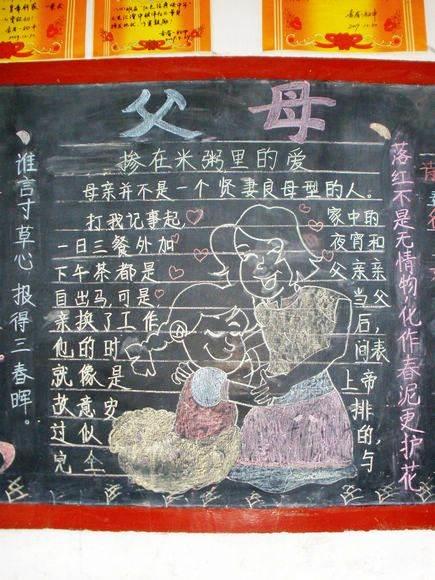 父母
掺在米粥里的爱
母亲并不是一个贤妻良母型的人。
打我记事起, 家中的
一日三餐外加 夜宵和
下午茶都是 父亲亲
自出马,可是 当父
亲换了工作 后,
他的时 间表
就像是 上帝
故意安 排的,
过似 与
完全
谁言寸草心 报得三春晖。
落红不是无情物,化作春泥更护花